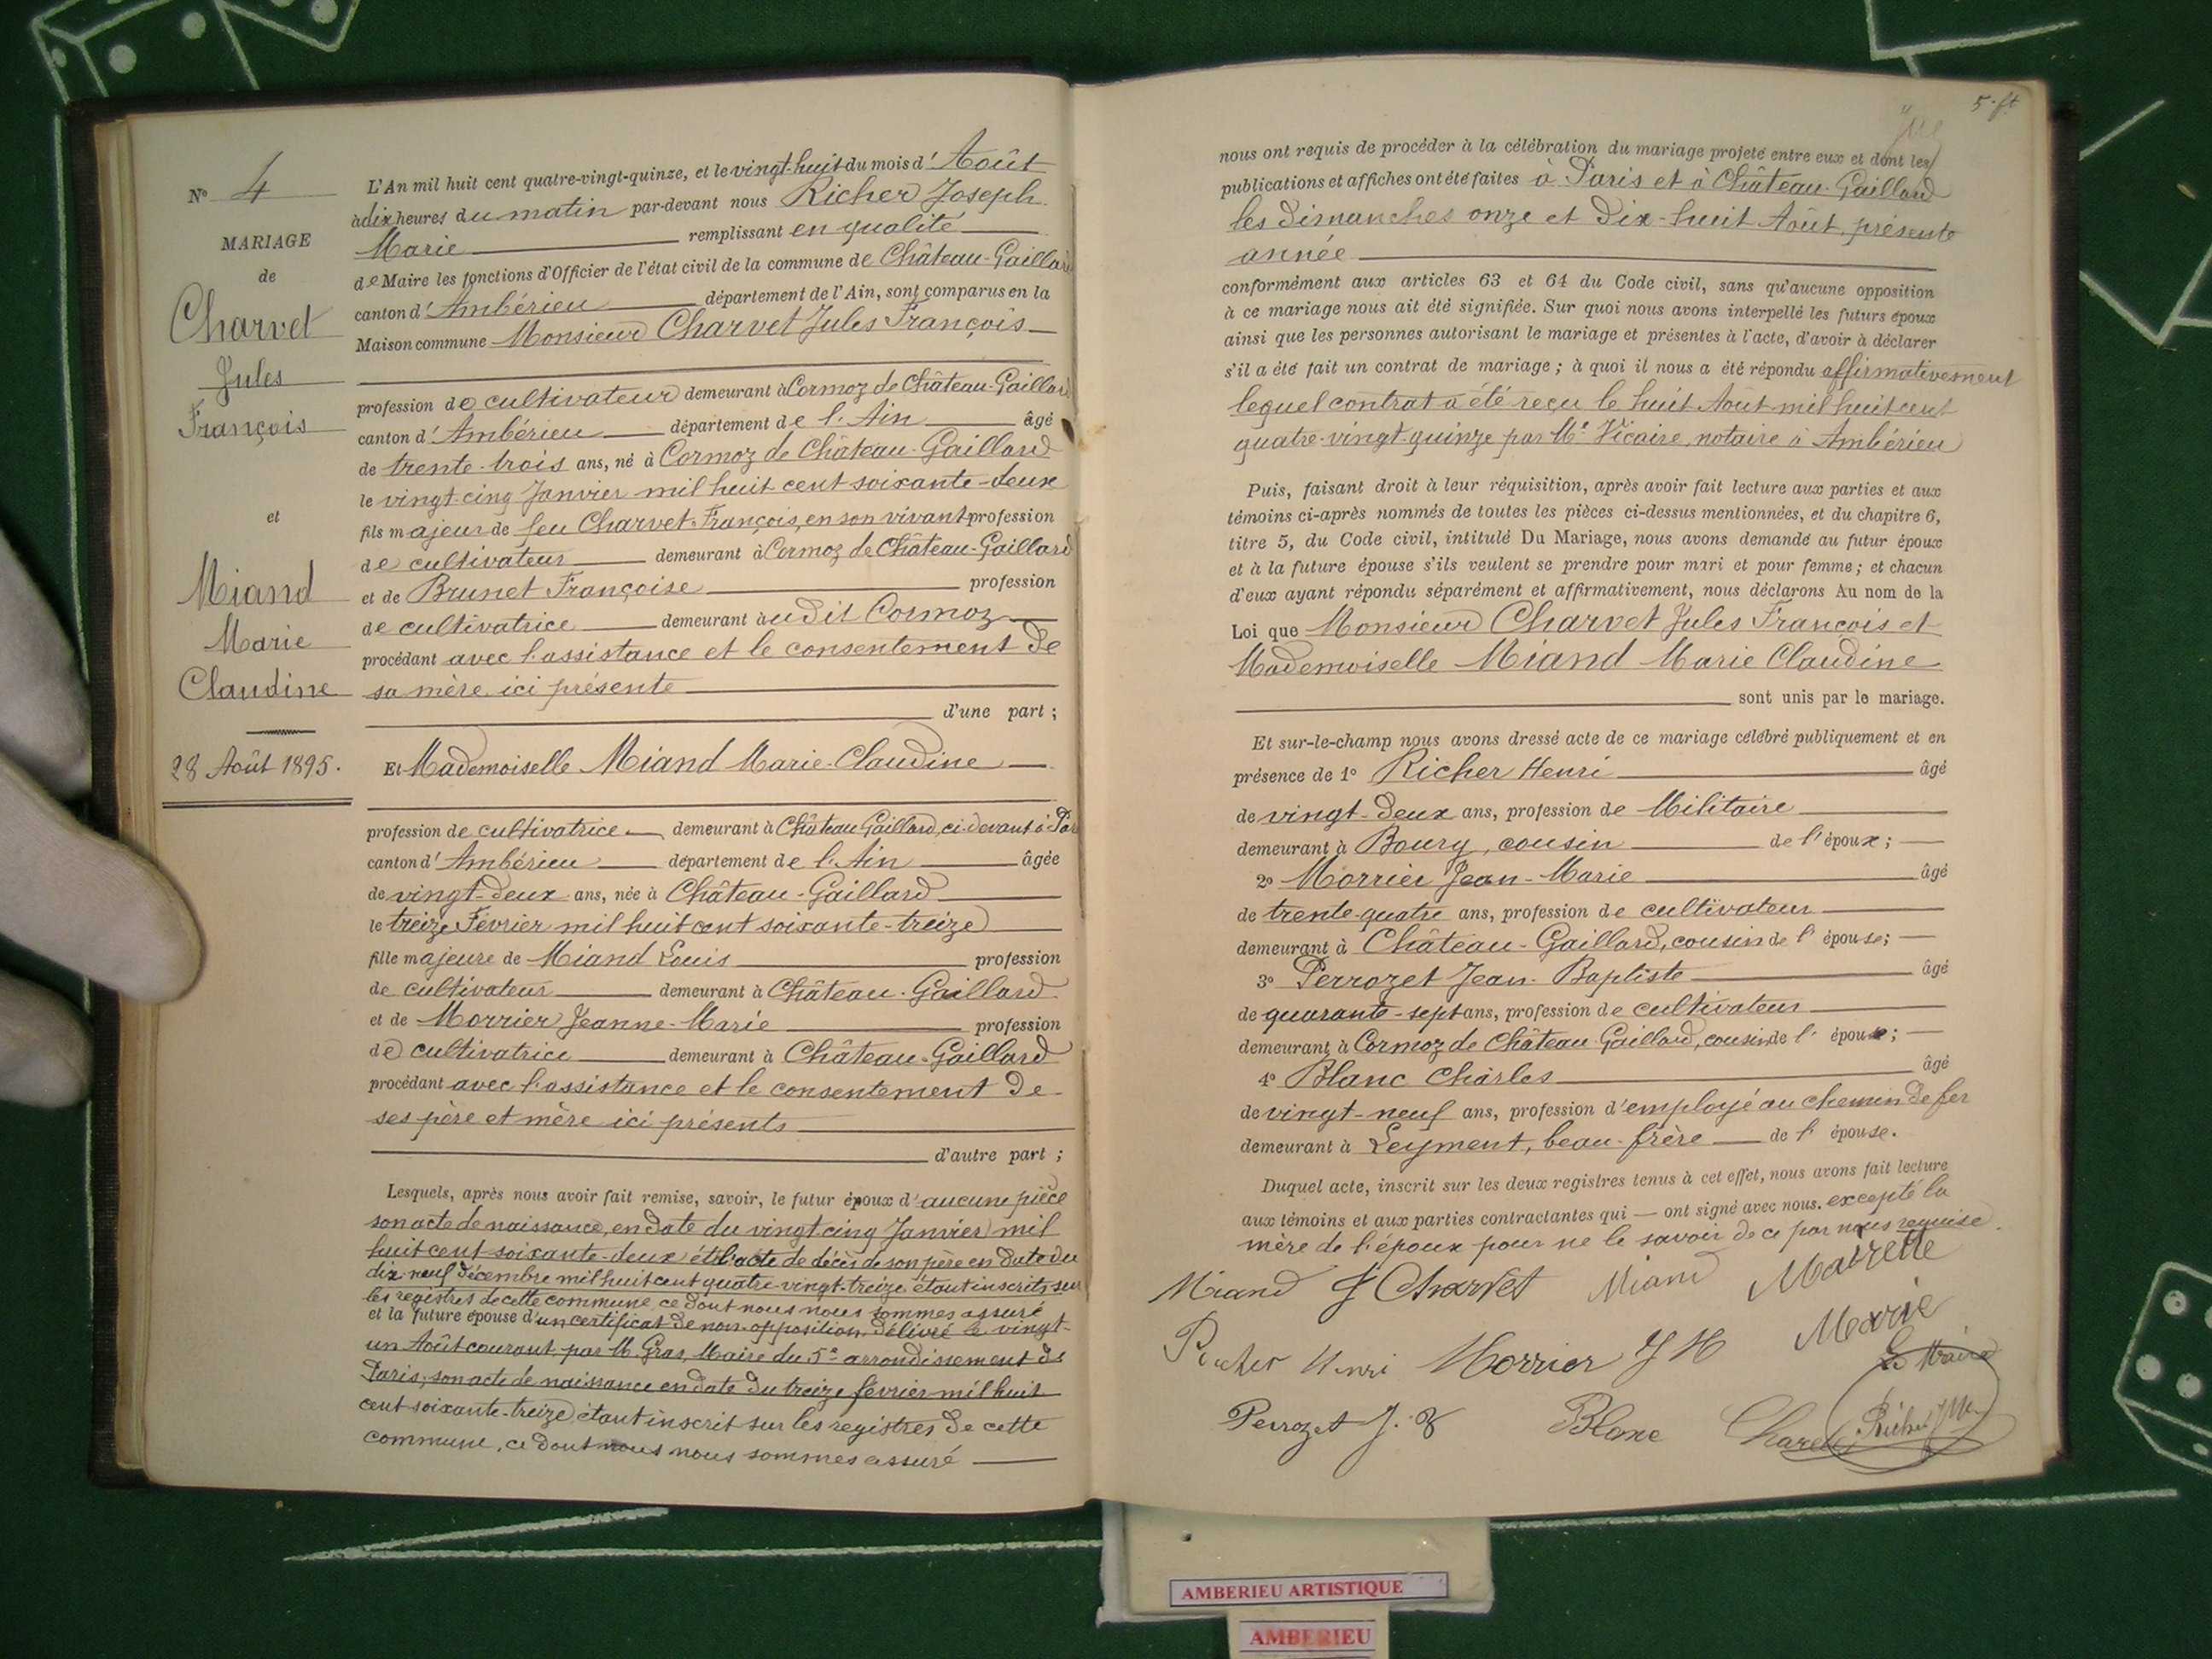 N° 4
MARIAGE
de
Charvet
Jules
François
et
Miand
Marie
Claudine
28 Août 1895.
L'An mil huit cent quatre-vingt-quinze, et le vingt-huit du mois d'Août
à dix heures du matin par-devant nous Richer Joseph
Marie remplissant en qualité
de Maire les fonctions d'Officier de l'état civil de la commune de Château-Gaillard
canton d'Ambérieu département de l'Ain, sont comparus en la
Maison commune Monsieur Charvet Jules François
profession de cultivateur demeurant à Cormoz de Château-Gaillard
canton d'Ambérieu département de l'Ain âgé
de trente-trois ans, né à Cormoz de Château-Gaillard
le vingt-cinq Janvier mil huit cent soixante-deux
fils majeur de feu Charvet François, en son vivant profession
de cultivateur demeurant à Cormoz de Château-Gaillard
et de Brunet Françoise profession
de cultivatrice demeurant audit Cormoz
procédant avec l'assistance et le consentement de
sa mère ici présente
d'une part ;
Et Mademoiselle Miand Marie-Claudine
profession de cultivatrice demeurant à Château Gaillard, ci-devant à Par
canton d'Ambérieu département de l'Ain âgée
de vingt-deux ans, née à Château-Gaillard
le treize Février mil huit cent soixante-treize
fille majeure de Miand Louis profession
de cultivateur demeurant à Château-Gaillard
et de Morrier Jeanne-Marie profession
de cultivatrice demeurant à Château-Gaillard
procédant avec l'assistance et le consentement de
ses père et mère ici présents
d'autre part ;
Lesquels, après nous avoir fait remise, savoir, le futur époux d'aucune pièce
son acte de naissance, en date du vingt-cinq Janvier mil
huit cent soixante-deux et l'acte de décès de son père en date du
dix-neuf Décembre mil huit cent quatre-vingt-treize étant inscrits sur
les registres de cette commune, ce dont nous nous sommes assuré
et la future épouse d'un certificat de non-opposition délivré le vingt-
un Août courant par M. Gras, Maire du 5e arrondissement de
Paris; son acte de naissance en date du treize février mil huit
cent soixante-treize étant inscrit sur les registres de cette
commune, ce dont nous nous sommes assuré
nous ont requis de procéder à la célébration du mariage projeté entre eux et dont les
publications et affiches ont été faites à Paris et à Château-Gaillard
les dimanches onze et dix-huit Août, présente
année
conformément aux articles 63 et 64 du Code civil, sans qu'aucune opposition
à ce mariage nous ait été signifiée. Sur quoi nous avons interpellé les futurs époux
ainsi que les personnes autorisant le mariage et présentes à l'acte, d'avoir à déclarer
s'il a été fait un contrat de mariage ; à quoi il nous a été répondu affirmativement
lequel contrat a été reçu le huit Août mil huit cent
quatre-vingt-quinze par Me Vicaire, notaire à Ambérieu
Puis, faisant droit à leur réquisition, après avoir fait lecture aux parties et aux
témoins ci-après nommés de toutes les pièces ci-dessus mentionnées, et du chapitre 6,
titre 5, du Code civil, intitulé Du Mariage, nous avons demandé au futur époux
et à la future épouse s'ils veulent se prendre pour mari et pour femme ; et chacun
d'eux ayant répondu séparément et affirmativement, nous déclarons Au nom de la
Loi que Monsieur Charvet Jules François et
Mademoiselle Miand Marie Claudine
sont unis par le mariage.
Et sur-le-champ nous avons dressé acte de ce mariage célébré publiquement et en
présence de 1° Richer Henri âgé
de vingt-deux ans, profession de Militaire
demeurant à Bourg, cousin de l'époux ;
2° Morrier Jean-Marie âgé
de trente-quatre ans, profession de cultivateur
demeurant à Château-Gaillard, cousin de l'épouse ;
3° Perrozet Jean-Baptiste âgé
de quarante-sept ans, profession de cultivateur
demeurant à Cormoz de Château Gaillard, cousin de l'épouse ;
4° Blanc Charles âgé
de vingt-neuf ans, profession d'employé au chemin de fer
demeurant à Leyment, beau-frère de l'épouse.
Duquel acte, inscrit sur les deux registres tenus à cet effet, nous avons fait lecture
aux témoins et aux parties contractantes qui ont signé avec nous. excepté la
mère de l'époux pour ne le savoir de ce par nous requise.
Miand J Charvet Miand
Richer Henri Morrier J M Marie
Le Maire
Perrozet J. B Blanc Charles Richer JM
AMBERIEU ARTISTIQUE
AMBERIEU